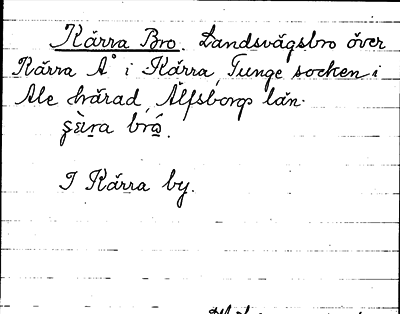 Kärra Bro. Landsvägsbro över
Kärra Å i Kärra, Tunge socken i
Ale härad, Älfsborgs län.
I Kärra by.